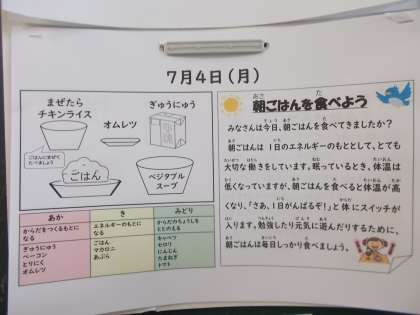 7月4日(月)
まぜたら
チキンライス
ぎゅうにゅう
オムレツ
ごはんにまぜて
たべましょう
ごはん
ベジタブル
スープ
あか
き
みどり
からだをつくるもとに
なる
エネルギーのもとに
なる
からだのちょうしを
ととのえる
ぎゅうにゅう
ベーコン
とりにく
オムレツ
ごはん
マカロニ
あぶら
キャベツ
セロリ
にんじん
たまねぎ
トマト
朝ごはんを食べよう
みなさんは今日、朝ごはんを食べてきましたか?
朝ごはんは1日のエネルギーのもととして、とても
大切な働きをしています。眠っているとき、体温は
低くなっていますが、朝ごはんを食べると体温が高
くなり、「さあ、1日がんばるぞ!」と体にスイッチが
入ります。勉強したり元気に遊んだりするために、
朝ごはんは毎日しっかり食べましょう。